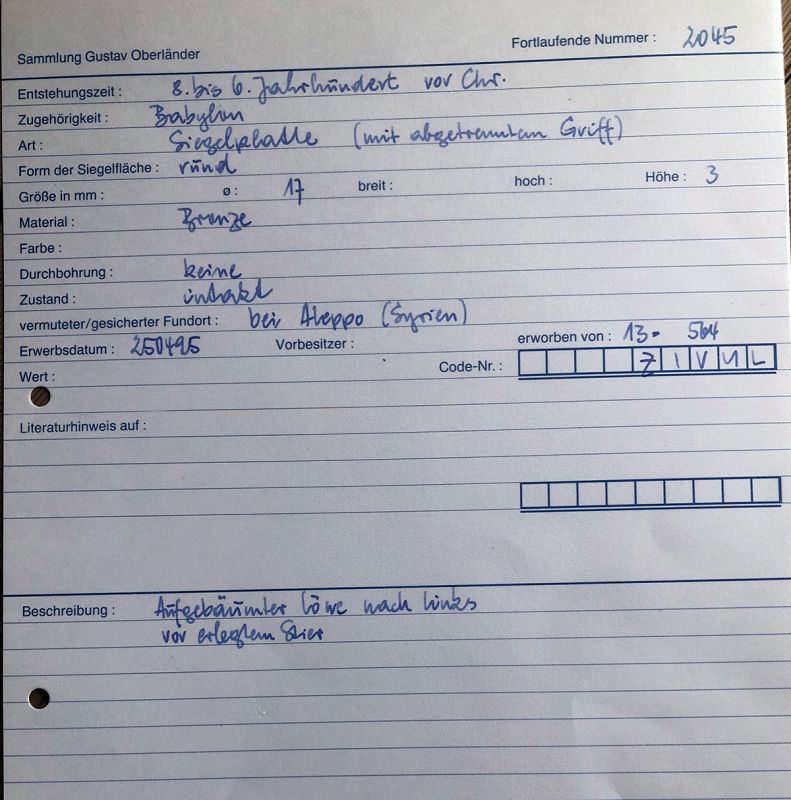 Sammlung Gustav Oberländer
Fortlaufende Nummer : 2045
Entstehungszeit : 8. bis 6. Jahrhundert vor Chr.
Zugehörigkeit : Babylon
Art : Siegelplatte (mit abgetrenntem Griff)
Form der Siegelfläche : rund
Größe in mm : ø : 17 breit : hoch : Höhe : 3
Material : Bronze
Farbe :
Durchbohrung : keine
Zustand : intakt
vermuteter/gesicherter Fundort : bei Aleppo (Syrien)
Erwerbsdatum : 250495 Vorbesitzer : erworben von : 13- 564
Wert : Code-Nr. : Z I V U L
Literaturhinweis auf :
Beschreibung : Aufgebäumter Löwe nach links
vor erlegtem Stier